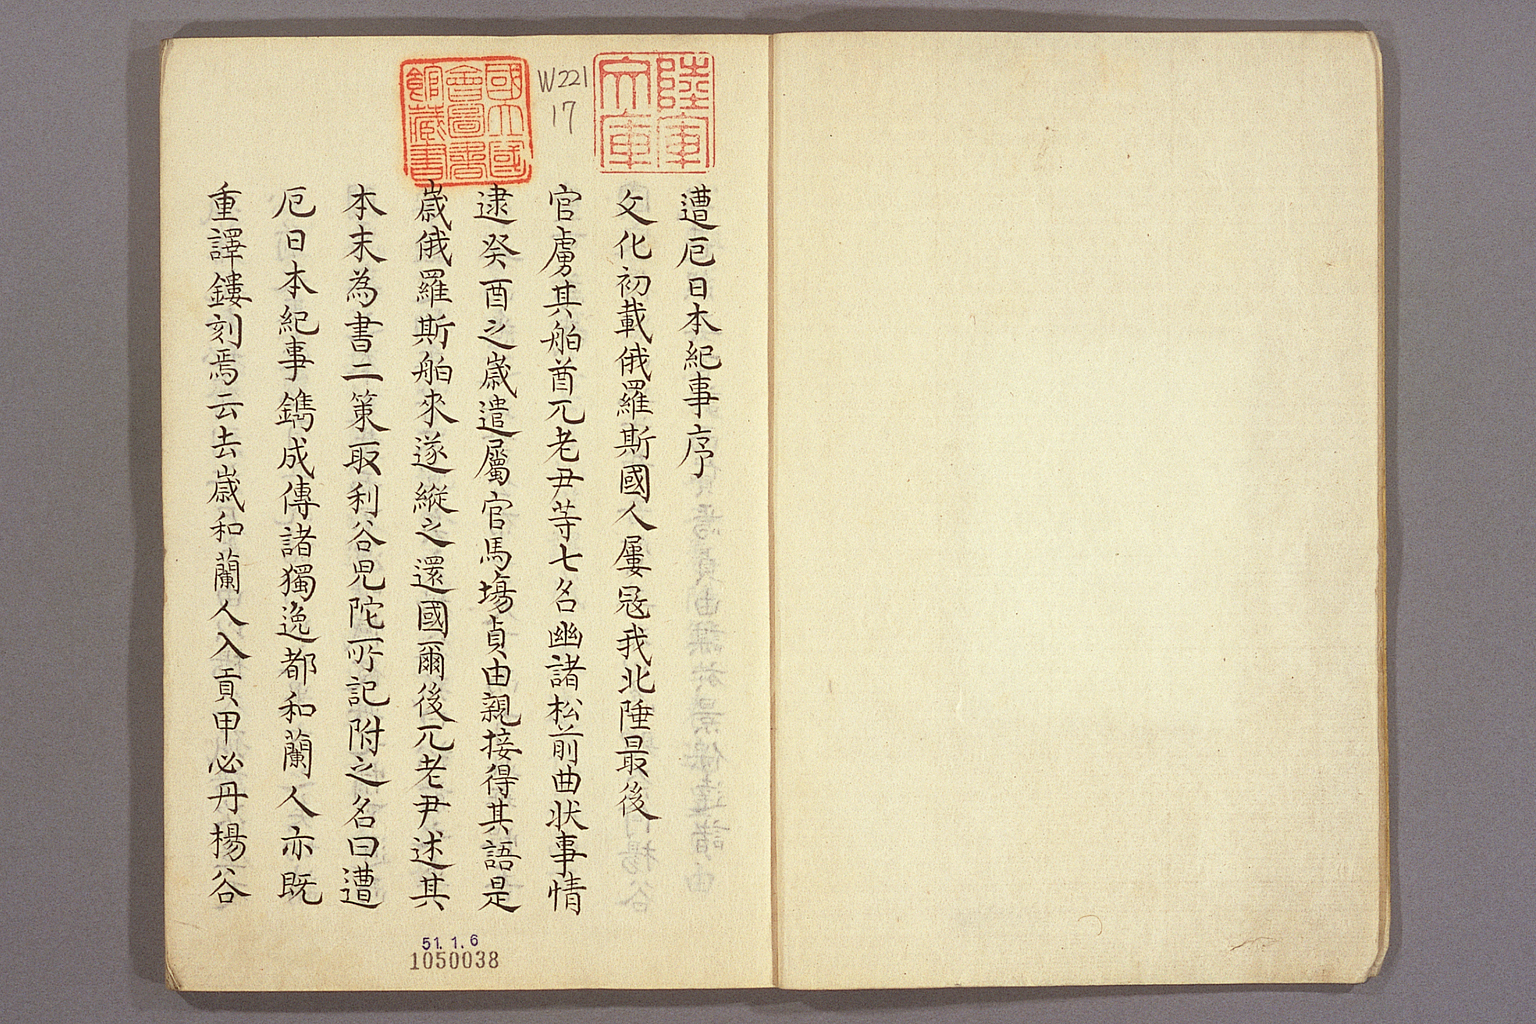 陸軍
文庫
W221
17
國立國
會圖書
館藏書
遭厄日本紀事序
文化初載俄羅斯國人屢冦我北陲最後
官虜其舶酋兀老尹等七名幽諸松前曲状事情
逮癸酉之歳遣屬官馬塲貞由親接得其語是
歳俄羅斯舶來遂縦之還國爾後兀老尹述其
本末為書二策取利谷児陀所記附之名曰遭
厄日本紀事鐫成傳諸獨逸都和蘭人亦既
重譯鏤刻焉云去歳和蘭人入貢甲必丹楊谷
51. 1. 6
1050038